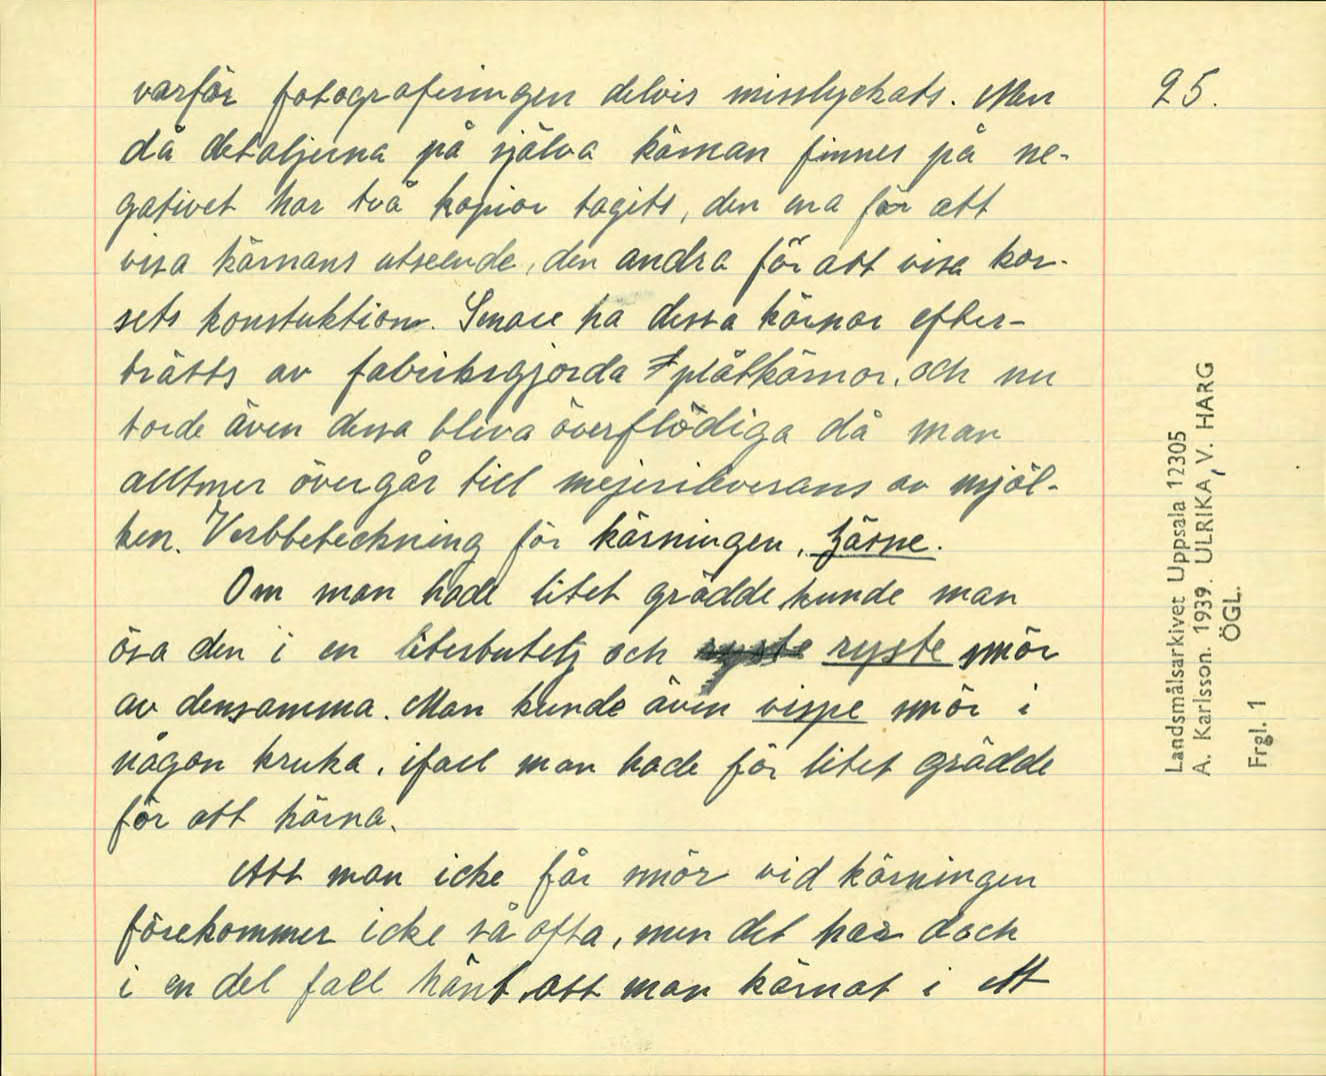 varför fotograferingen delvis misslyckats. Men
då detaljerna på själva kärnan finnes på ne-
gativet har två kopior tagits, den ena för att
visa kärnans utseende, den andra för att visa kor-
sets konstuktion. Senare ha dessa kärnor efter-
trätts av fabriksgjorda plåtkärnor, och nu
torde även dessa bliva överflödiga då man
alltmer övergår till mejerileverans av mjöl-
ken. Verbbeteckning för kärningen, tjärne.
Om man hade litet grädde kunde man
ösa den i en literbutelj och ryste smör
av densamma. Man kunde även vispe smör i
någon kruka, ifall man hade för litet grädde
för att kärna.
Att man icke får smör vid kärningen
förekommer icke så ofta, men det har dock
i en del fall hänt, att man kärnat i ett
25.
Landsmålsarkivet Uppsala 12305
A. Karlsson. 1939. ULRIKA, V. HARG
ÖGL.
Frgl. 1